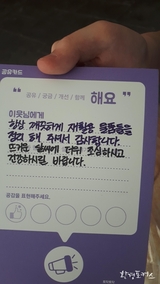 공감카드
공유 / 공공 / 개선 / 함께 해요
이웃님에게
항상 깨끗하게 재활용 물품들을
정리 해 주셔서 감사합니다.
뜨거운 날씨에 더위 조심하시고
건강하시길 바랍니다.
공감을 표현해주세요.